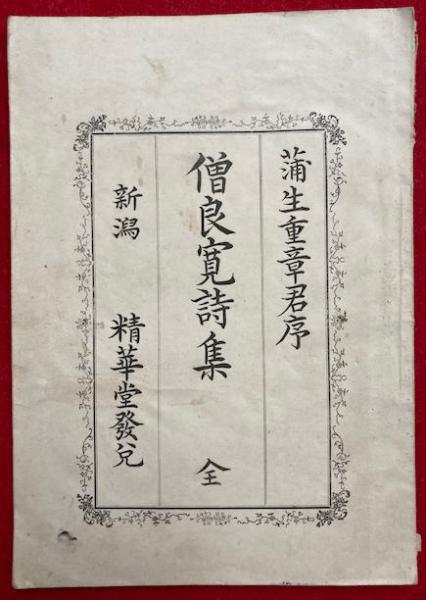 蒲生重章君序
僧良寛詩集 全
新潟 精華堂發兌